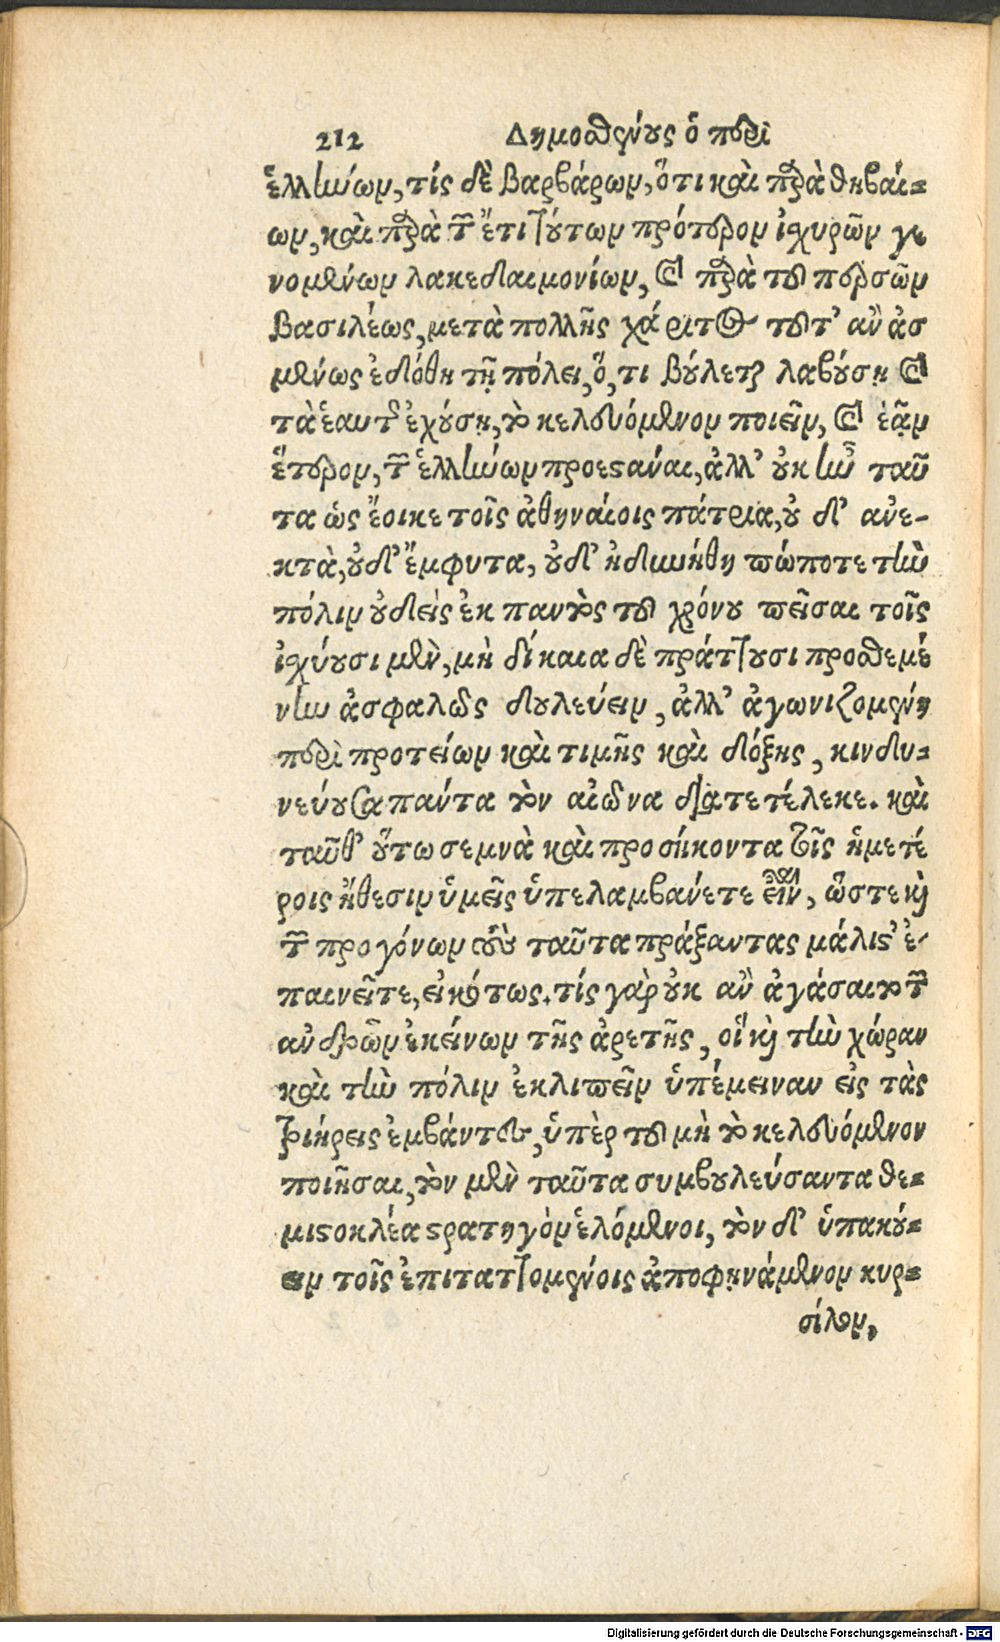 212 Δημοσθένους ὁ περὶ
ἑλλήνων, τίς δὲ βαρβάρων, ὅτι καὶ παρὰ θηβαί=
ων, καὶ παρὰ τῶν ἔτι τούτων πρότερον ἰσχυρῶν γε
νομένων λακεδαιμονίων, καὶ παρὰ τοῦ περσῶν
βασιλέως, μετὰ πολλῆς χάριτος τοῦτ' ἂν ἀσ
μένως ἐδόθη τῇ πόλει, ὅ, τι βούλεται λαβούσῃ καὶ
τὰ ἑαυτῆς ἐχούσῃ, τὸ κελευόμενον ποιεῖν, καὶ ἐᾷν
ἕτερον, τῶν ἑλλήνων προεστάναι, ἀλλ' οὐκ ἦν ταῦ
τα ὡς ἔοικε τοῖς ἀθηναίοις πάτρια, οὐ δ' ἀνε-
κτὰ, οὐδ' ἔμφυτα, οὐδ' ἠδυνήθη πώποτε τὴν
πόλιν οὐδεὶς ἐκ παντὸς τοῦ χρόνου πεῖσαι τοῖς
ἰσχύουσι μὲν, μὴ δίκαια δὲ πράττουσι προσθεμέ
νην ἀσφαλῶς δουλεύειν, ἀλλ' ἀγωνιζομένη
περὶ πρωτείων καὶ τιμῆς καὶ δόξης, κινδυ=
νεύουσα πάντα τὸν αἰῶνα διατετέλεκε. καὶ
ταῦθ' οὕτω σεμνὰ καὶ προσήκοντα τοῖς ἡμετέ
ροις ἤθεσιν ὑμεῖς ὑπελαμβάνετε εἶναι, ὥστε καὶ
τῶν προγόνων τοὺς ταῦτα πράξαντας μάλιστ' ἐ-
παινεῖτε, εἰκότως. τίς γὰρ οὐκ ἂν ἀγάσαιτο τῶν
ἀνδρῶν ἐκείνων τῆς ἀρετῆς, οἳ καὶ τὴν χώραν
καὶ τὴν πόλιν ἐκλιπεῖν ὑπέμειναν εἰς τὰς
τριήρεις ἐμβάντες, ὑπὲρ τοῦ μὴ τὸ κελευόμενον
ποιῆσαι, τὸν μὲν ταῦτα συμβουλεύσαντα θε=
μιστοκλέα στρατηγὸν ἑλόμενοι, τὸν δ' ὑπακού=
ειν τοῖς ἐπιταττομένοις ἀποφηνάμενον κυρ=
σίλον,
Digitalisierung gefördert durch die Deutsche Forschungsgemeinschaft - DFG